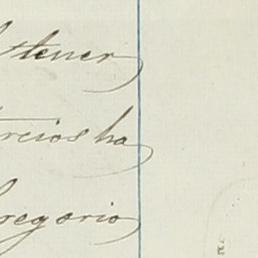 tener
rcios ha
regorio